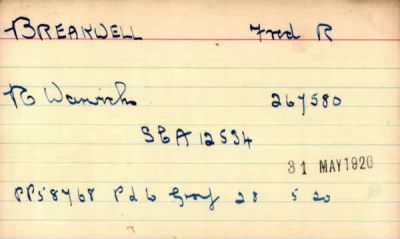 BREAKWELL Fred R
R Warwicks 267580
SEA 12534
31 MAY 1920
PP58768 Pd 6 Grof 28 5 20